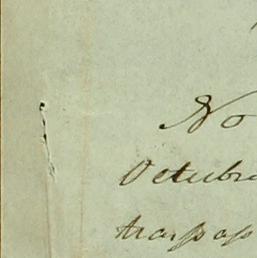 No
Octubre
traspas